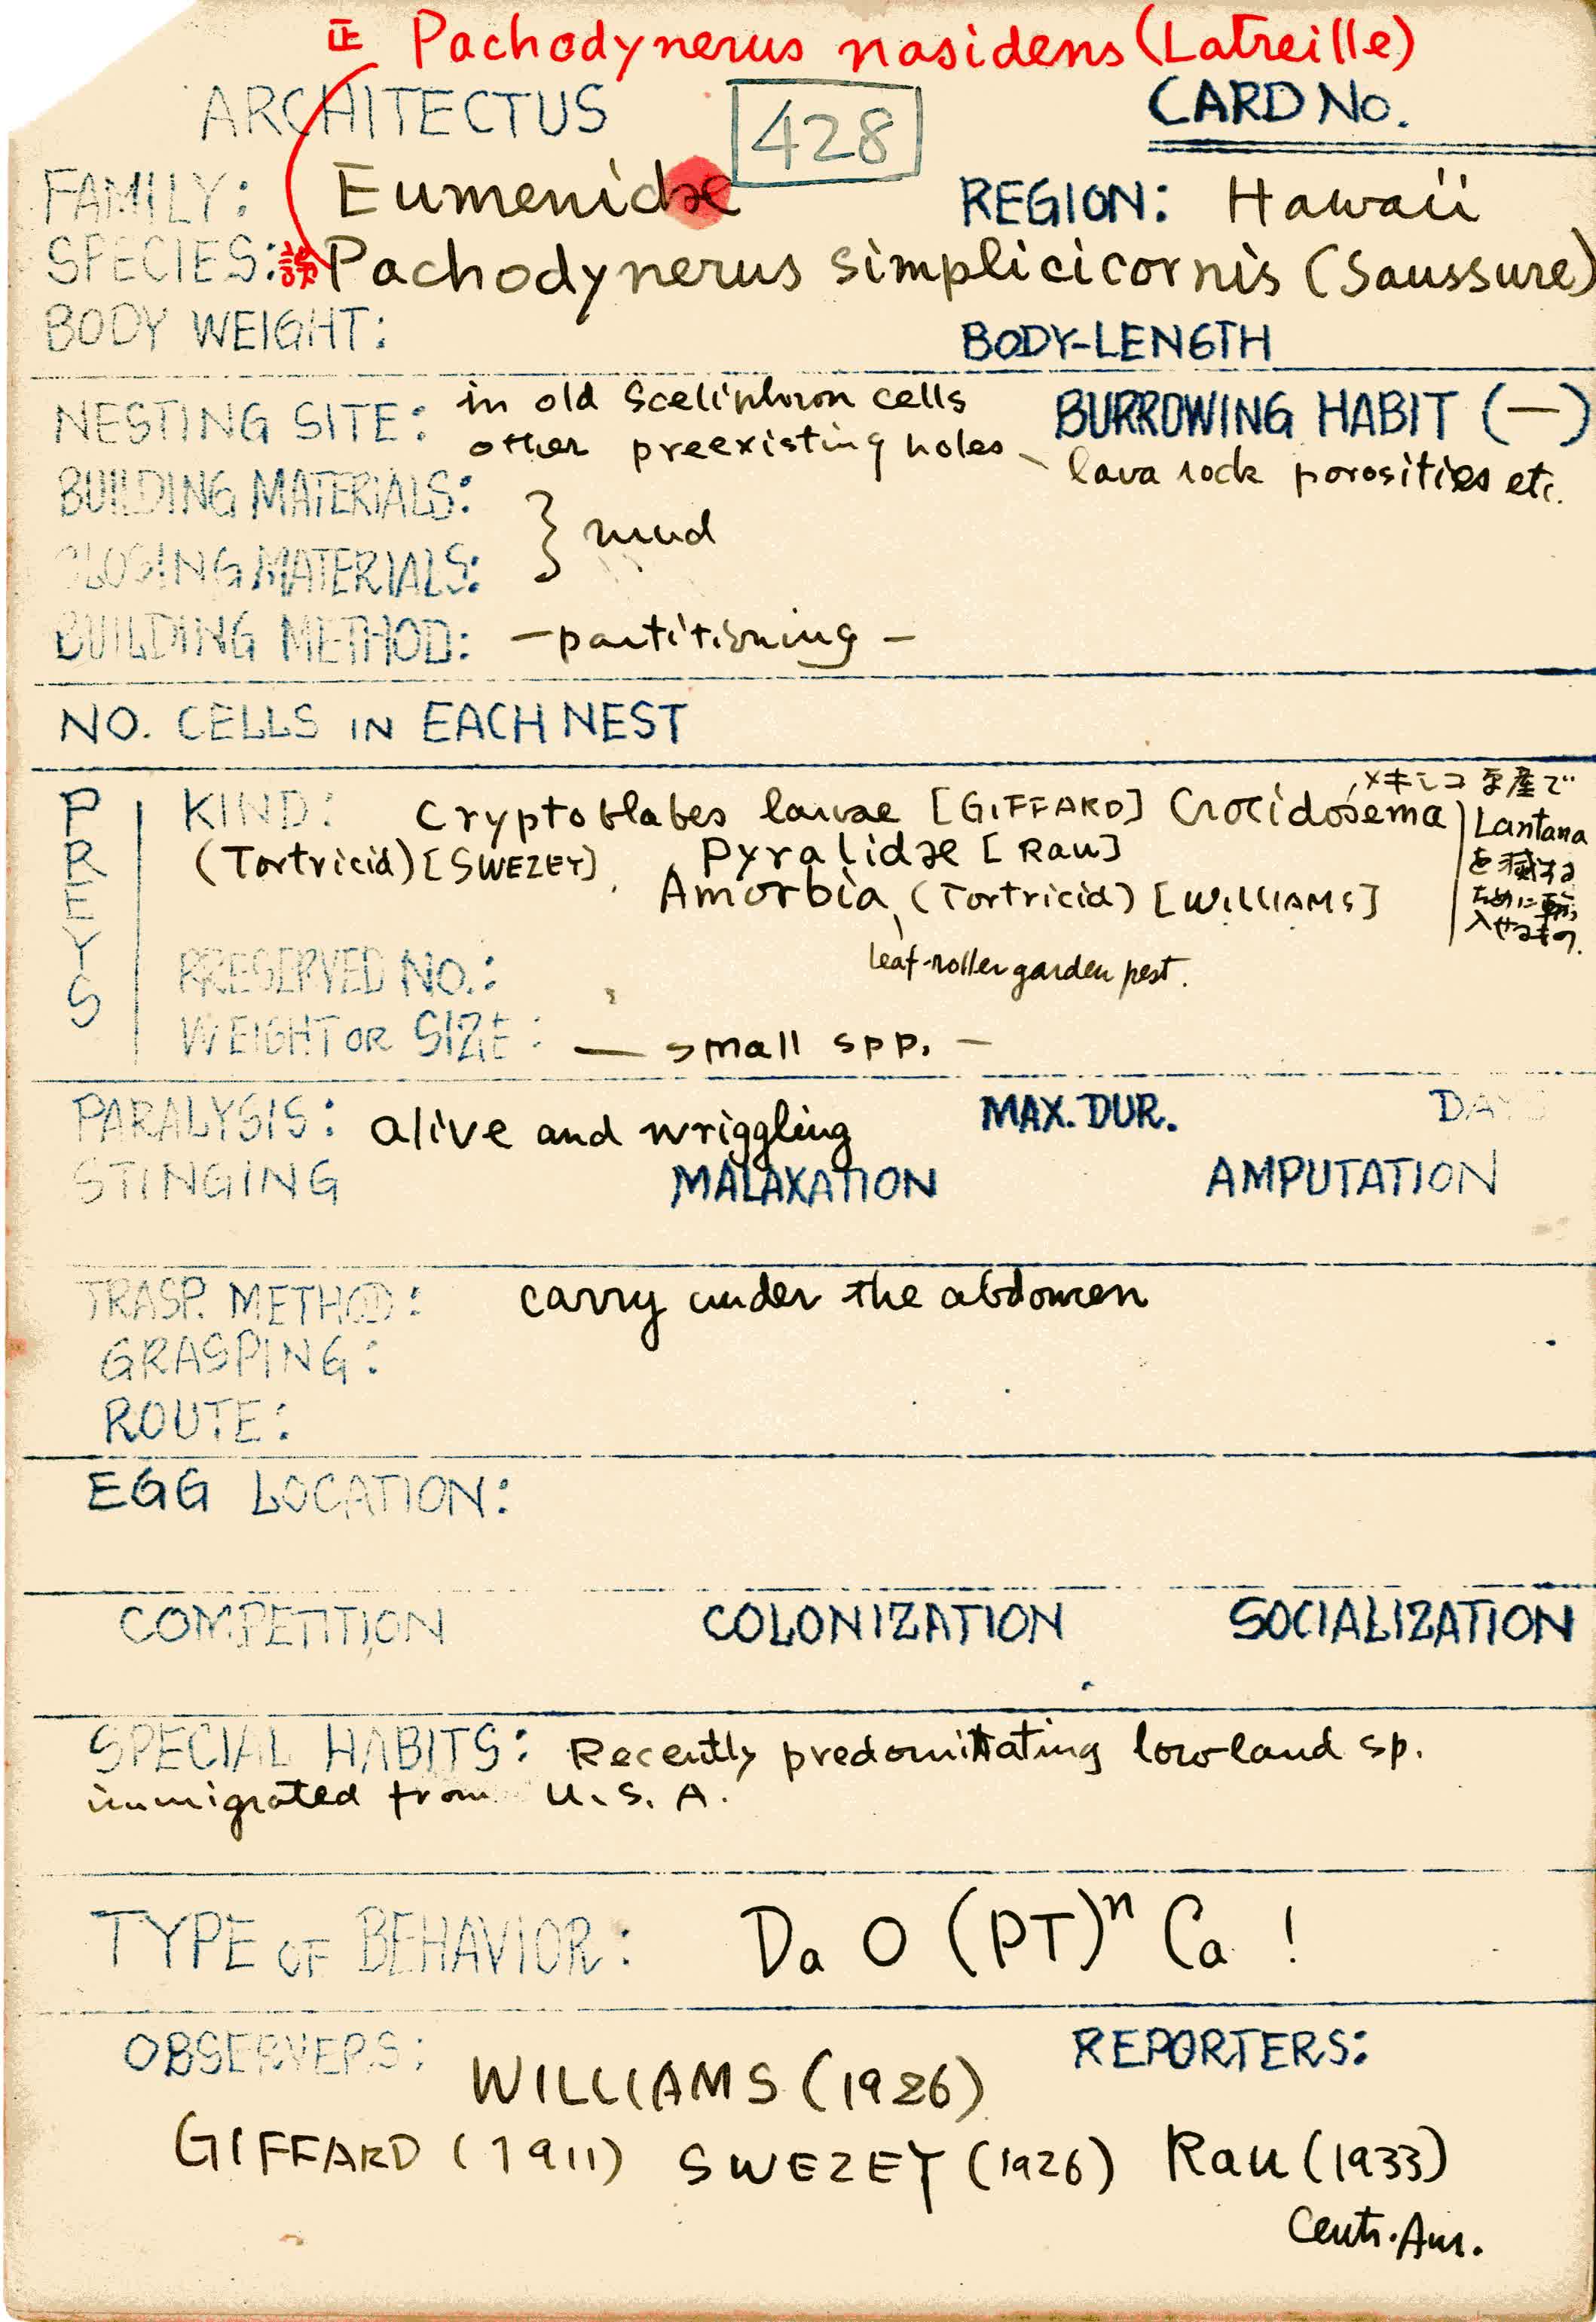 正 Pachodynerus nasidens (Latreille)
ARCHITECTUS 428 CARD No.
FAMILY: Eumenidae REGION: Hawaii
SPECIES: 誤 Pachodynerus simplicicornis (Saussure)
BODY WEIGHT: BODY-LENGTH
NESTING SITE: in old Sceliphron cells BURROWING HABIT (—)
other preexisting holes – lava rock porosities etc.
BUILDING MATERIALS:
} mud
CLOSING MATERIALS:
BUILDING METHOD: – partitioning –
NO. CELLS IN EACH NEST
PREYS
KIND: Cryptoblabes larvae [GIFFARD] Crocidosema
(Tortricid) [SWEZEY], Pyralidae [Rau]
Amorbia (Tortricid) [WILLIAMS]
leaf-roller garden pest.
メキシコ原産で
Lantana
を滅する
ために
入せるもの.
PRESERVED NO.:
WEIGHT OR SIZE: — small spp. —
PARALYSIS: alive and wriggling MAX. DUR. DAYS
STINGING MALAXATION AMPUTATION
TRASP. METHOD: carry under the abdomen
GRASPING:
ROUTE:
EGG LOCATION:
COMPETITION COLONIZATION SOCIALIZATION
SPECIAL HABITS: Recently predominating lowland sp.
immigrated from U.S.A.
TYPE OF BEHAVIOR: Da O (PT)ⁿ Ca !
OBSERVERS: REPORTERS:
WILLIAMS (1926)
GIFFARD (1911) SWEZEY (1926) Rau (1933)
Centr. Am.